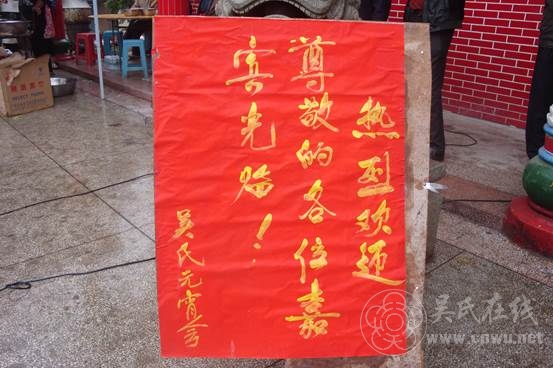 热烈欢迎
尊敬的各位嘉
宾光临！
吴氏元宵会
吴氏在线
www.cnwu.net